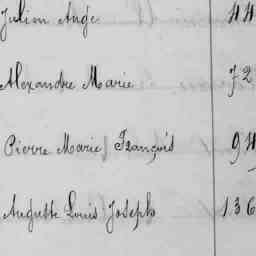 Julien Ange 44
Alexandre Marie 72
Pierre Marie François 94
Auguste Louis Joseph 136